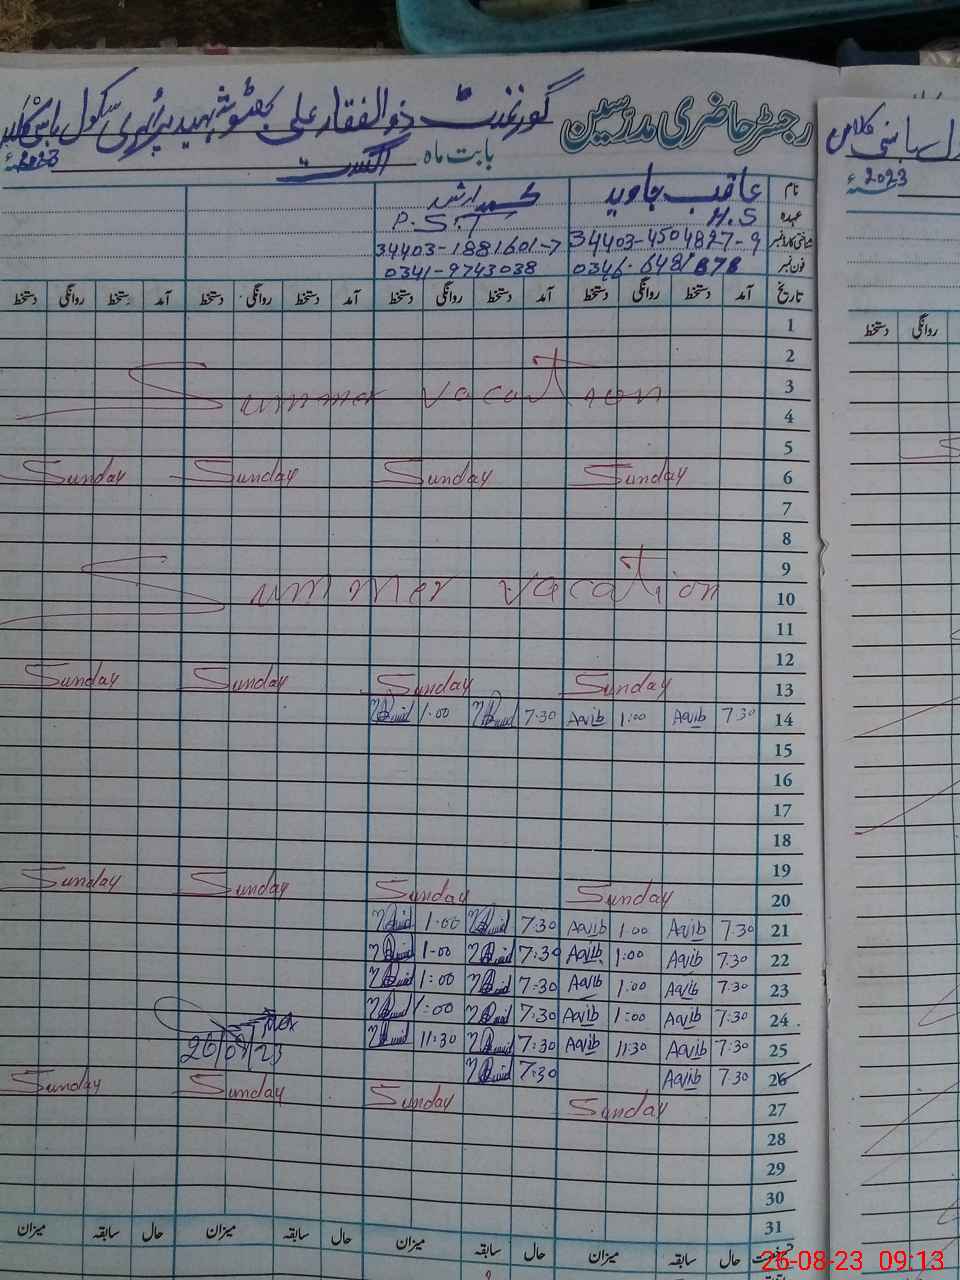 رجسٹر حاضری مدرسین گورنمنٹ ذوالفقار علی بھٹو شہید پرائمری سکول
بابت ماہ اگست 2023ء
نام عاقب جاوید ارشد
عہدہ H.S P.S.T
شناختی کارڈ نمبر 34403-4504827-9 34403-1881601-7
فون نمبر 0346-6481878 0341-9743038
تاریخ آمد دستخط روانگی دستخط آمد دستخط روانگی دستخط آمد دستخط روانگی دستخط آمد دستخط روانگی دستخط
1
2
3 Summer vacation
4
5
6 Sunday Sunday Sunday Sunday
7
8
9
10 Summer vacation
11
12
13 Sunday Sunday Sunday Sunday
14 7.30 Aqib 1:00 Aqib 7.30 1.00
15
16
17
18
19
20 Sunday Sunday Sunday Sunday
21 7.30 Aqib 1.00 Aqib 7.30 1.00
22 7.30 Aqib 1:00 Aqib 7:30 1-00
23 7.30 Aqib 1.00 Aqib 7:30 1:00
24 7:30 Aqib 1:00 Aqib 7:30 1:00
25 7:30 Aqib 11:30 Aqib 7:30 11:30
26 7.30 Aqib 7:30
26/08/23
27 Sunday Sunday Sunday Sunday
28
29
30
31
حال سابقہ میزان حال سابقہ میزان حال سابقہ میزان حال سابقہ میزان
2023ء
روانگی دستخط
26-08-23 09:13